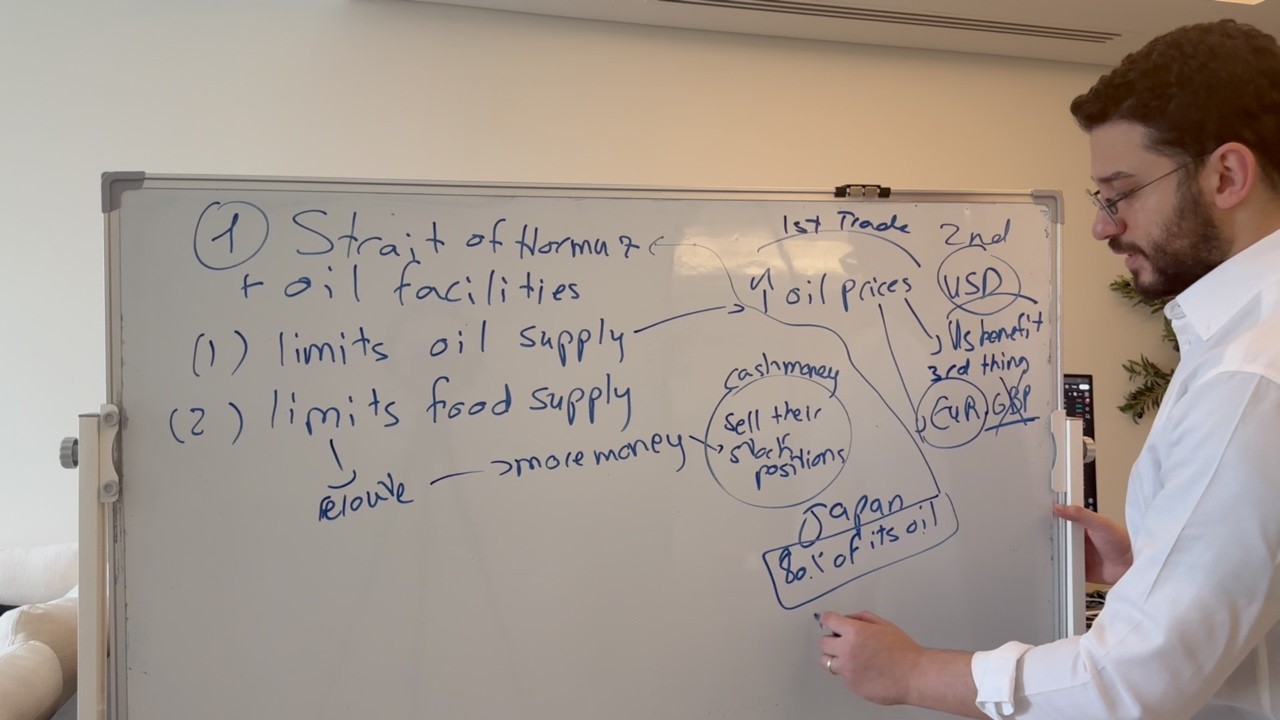 1 Strait of Hormuz
+ oil facilities
(1) limits oil supply
(2) limits food supply
→ more money
1st Trade
↑ oil prices
2nd
USD
US benefit
3rd thing
EUR GBP
cash money
Sell their
stock
positions
Japan
80% of its oil